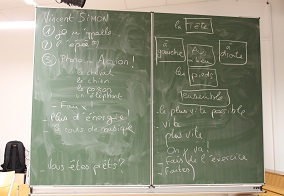 Vincent SIMON
① je m'appelle
② répète
③ Photo - Action!
le cheval
le chien
le poisson
l'éléphant
- Faux
- Plus d'énergie!
à cours de musique
Vous êtes prêts?
la Tête
à gauche
Au milieu
à droite
les pieds
ensemble
- le plus vite possible
- vite
plus vite
On y va!
- Fais de l'exercice
- Faites